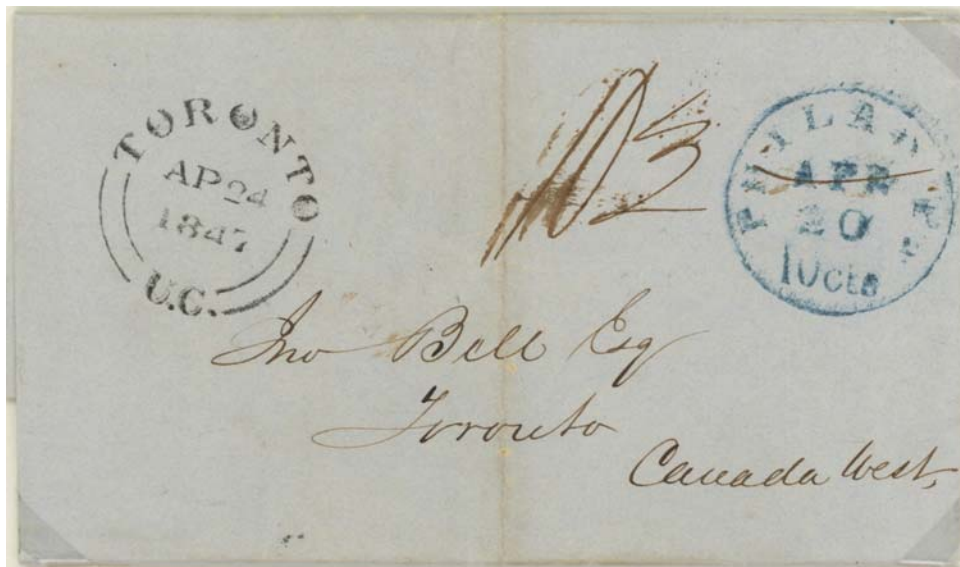 TORONTO
AP 24
1847
U.C.
PHILADA Pa
APR
20
10cts
Jno Bell Esq
Toronto
Canada West,